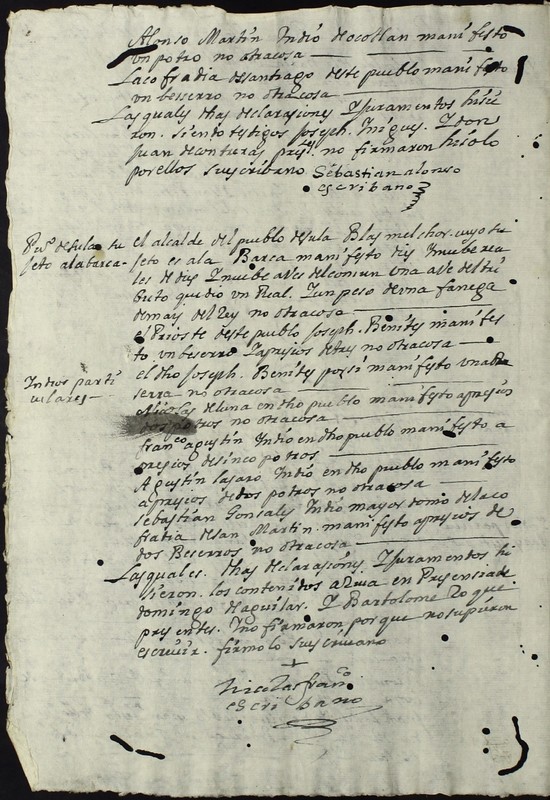 Alonso Martin Indio de ocotlan manifesto
vn potro no otra cosa
La cofradia de santiago deste pueblo manifesto
vn beserro no otra cosa
Las quales dhas declarasiones y juramentos hisie
ron. siendo testigos Joseph. Iniguis. y don
Juan de contreras no firmaron hisolo
por ellos su escribano Sebastian alonso
escribano
Pueo de sula su
jeto a la barca
el alcalde del pueblo de sula Blas melchor. cuyo su
jeto es a la Barca manifesto dies y nuebe rea
les de dies y nuebe abes del comun vna abe del tri
buto que dio vn Real. y un peso de vna fanega
de mais del Rey no otra cosa
el Prioste deste pueblo Joseph. Benites manifes
to vn beserro no otra cosa
Indios parti
culares
el dho Joseph. Benites por si manifesto vna be
serra no otra cosa
Nicolas de luna en dho pueblo manifesto
dos potros no otra cosa
franco agustin Indio en dho pueblo manifesto a
presios de sinco potros
Agustin lasaro Indio en dho pueblo manifesto
apresios de dos potros no otra cosa
Sebastian Gonsales Indio mayordomo de la co
fradia de san Martin. manifesto apresios de
dos Beserros no otra cosa
Las quales. dhas declarasiones y juramentos hi
sieron. los contenidos en Presensia de
domingo de aguilar. y Bartolome Roque
presentes. y no firmaron porque no supieron
escreuir. firmolo su escriuano
Nicolas franco
escribano